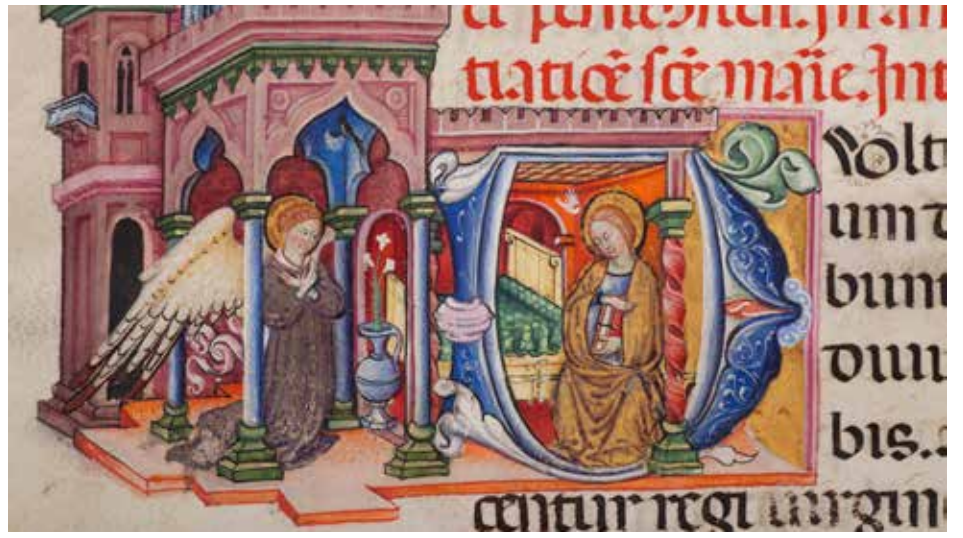 tiatiōe ſcē maīe. Int
Volt
um d
bunt
diui
bis.
centur regi uirgin